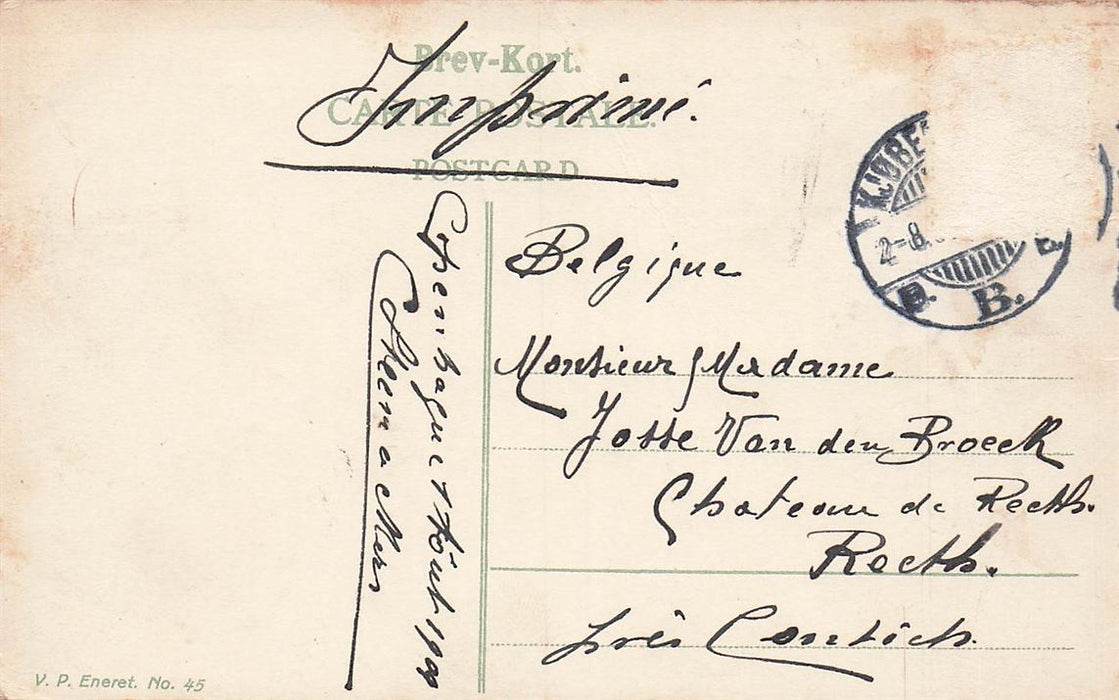 Brev-Kort.
CARTE POSTALE.
POSTCARD
Imprimé.
Belgique
Monsieur / Madame
Josse Van den Broeck
Chateau de Reeth.
Reeth.
près Contich.
Copenhague 1 Août 19
KJØBE
2-8.
B.
V. P. Eneret. No. 45